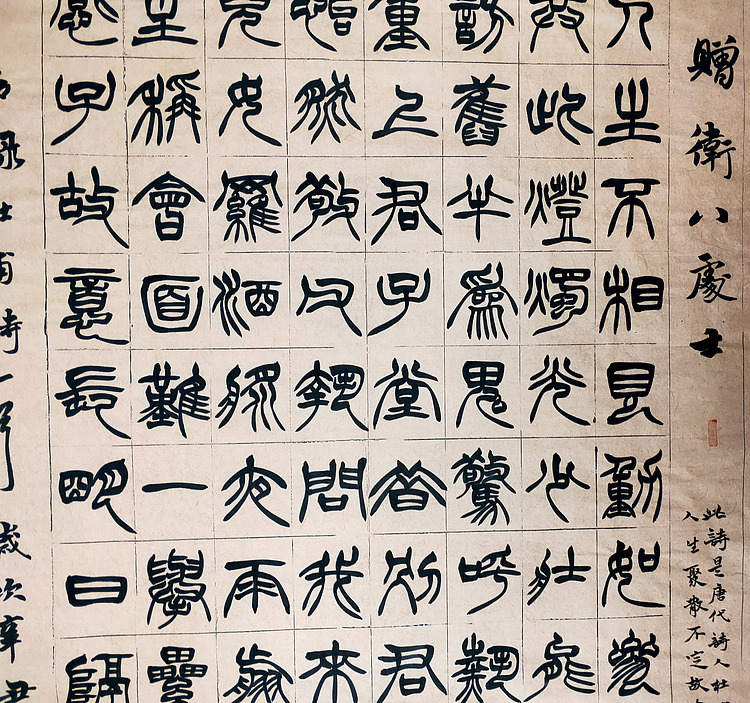 贈衛八處士
此詩是唐代詩人杜
人生聚散不定故
人生不相見動如參
共此燈燭光少壯能
訪舊半為鬼驚呼熱
重上君子堂昔別君
怡然敬父執問我來
兒女羅酒漿夜雨翦
主稱會面難一舉累
感子故意長明日隔
右录杜甫詩一首歲次辛丑